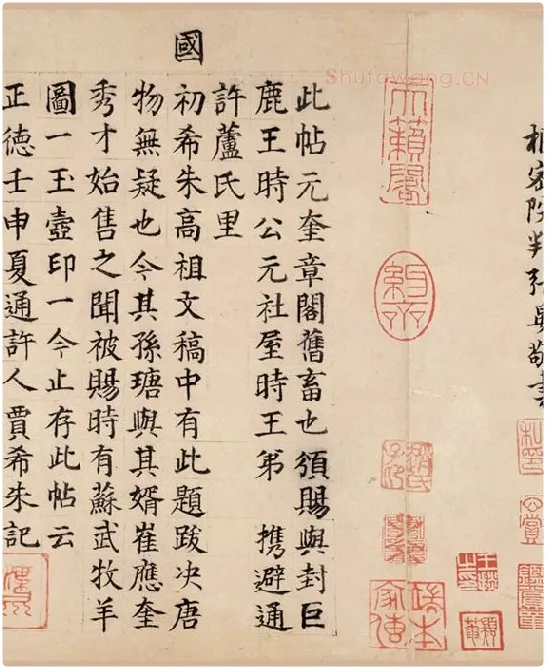 Shufawang.CN
密院判張晏敬書
天籟閣
此帖元奎章閣舊畜也須賜與封巨
鹿王時公元社屋時王弟 携避通
許蘆氏里
國初希朱高祖文稿中有此題跋决唐
物無疑也今其孫瑭與其婿崔應奎
秀才始售之聞被賜時有蘇武牧羊
圖一玉壺印一今止存此帖云
正德壬申夏通許人賈希朱記